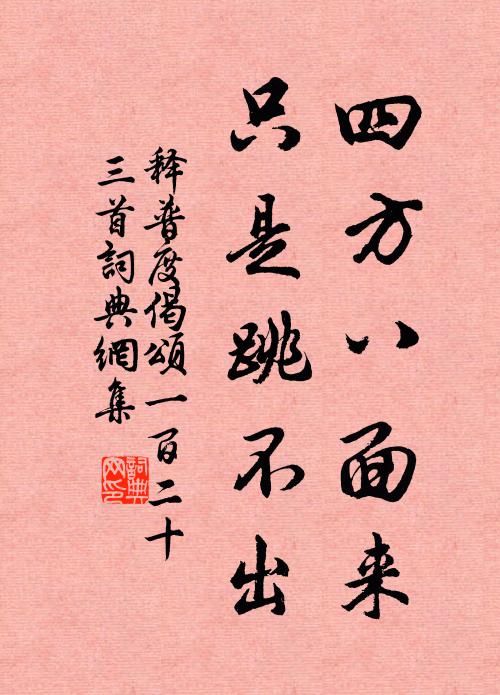 四方八面来
只是跳不出
释普度偈颂一百二十
三首詞典網集
詞典网印